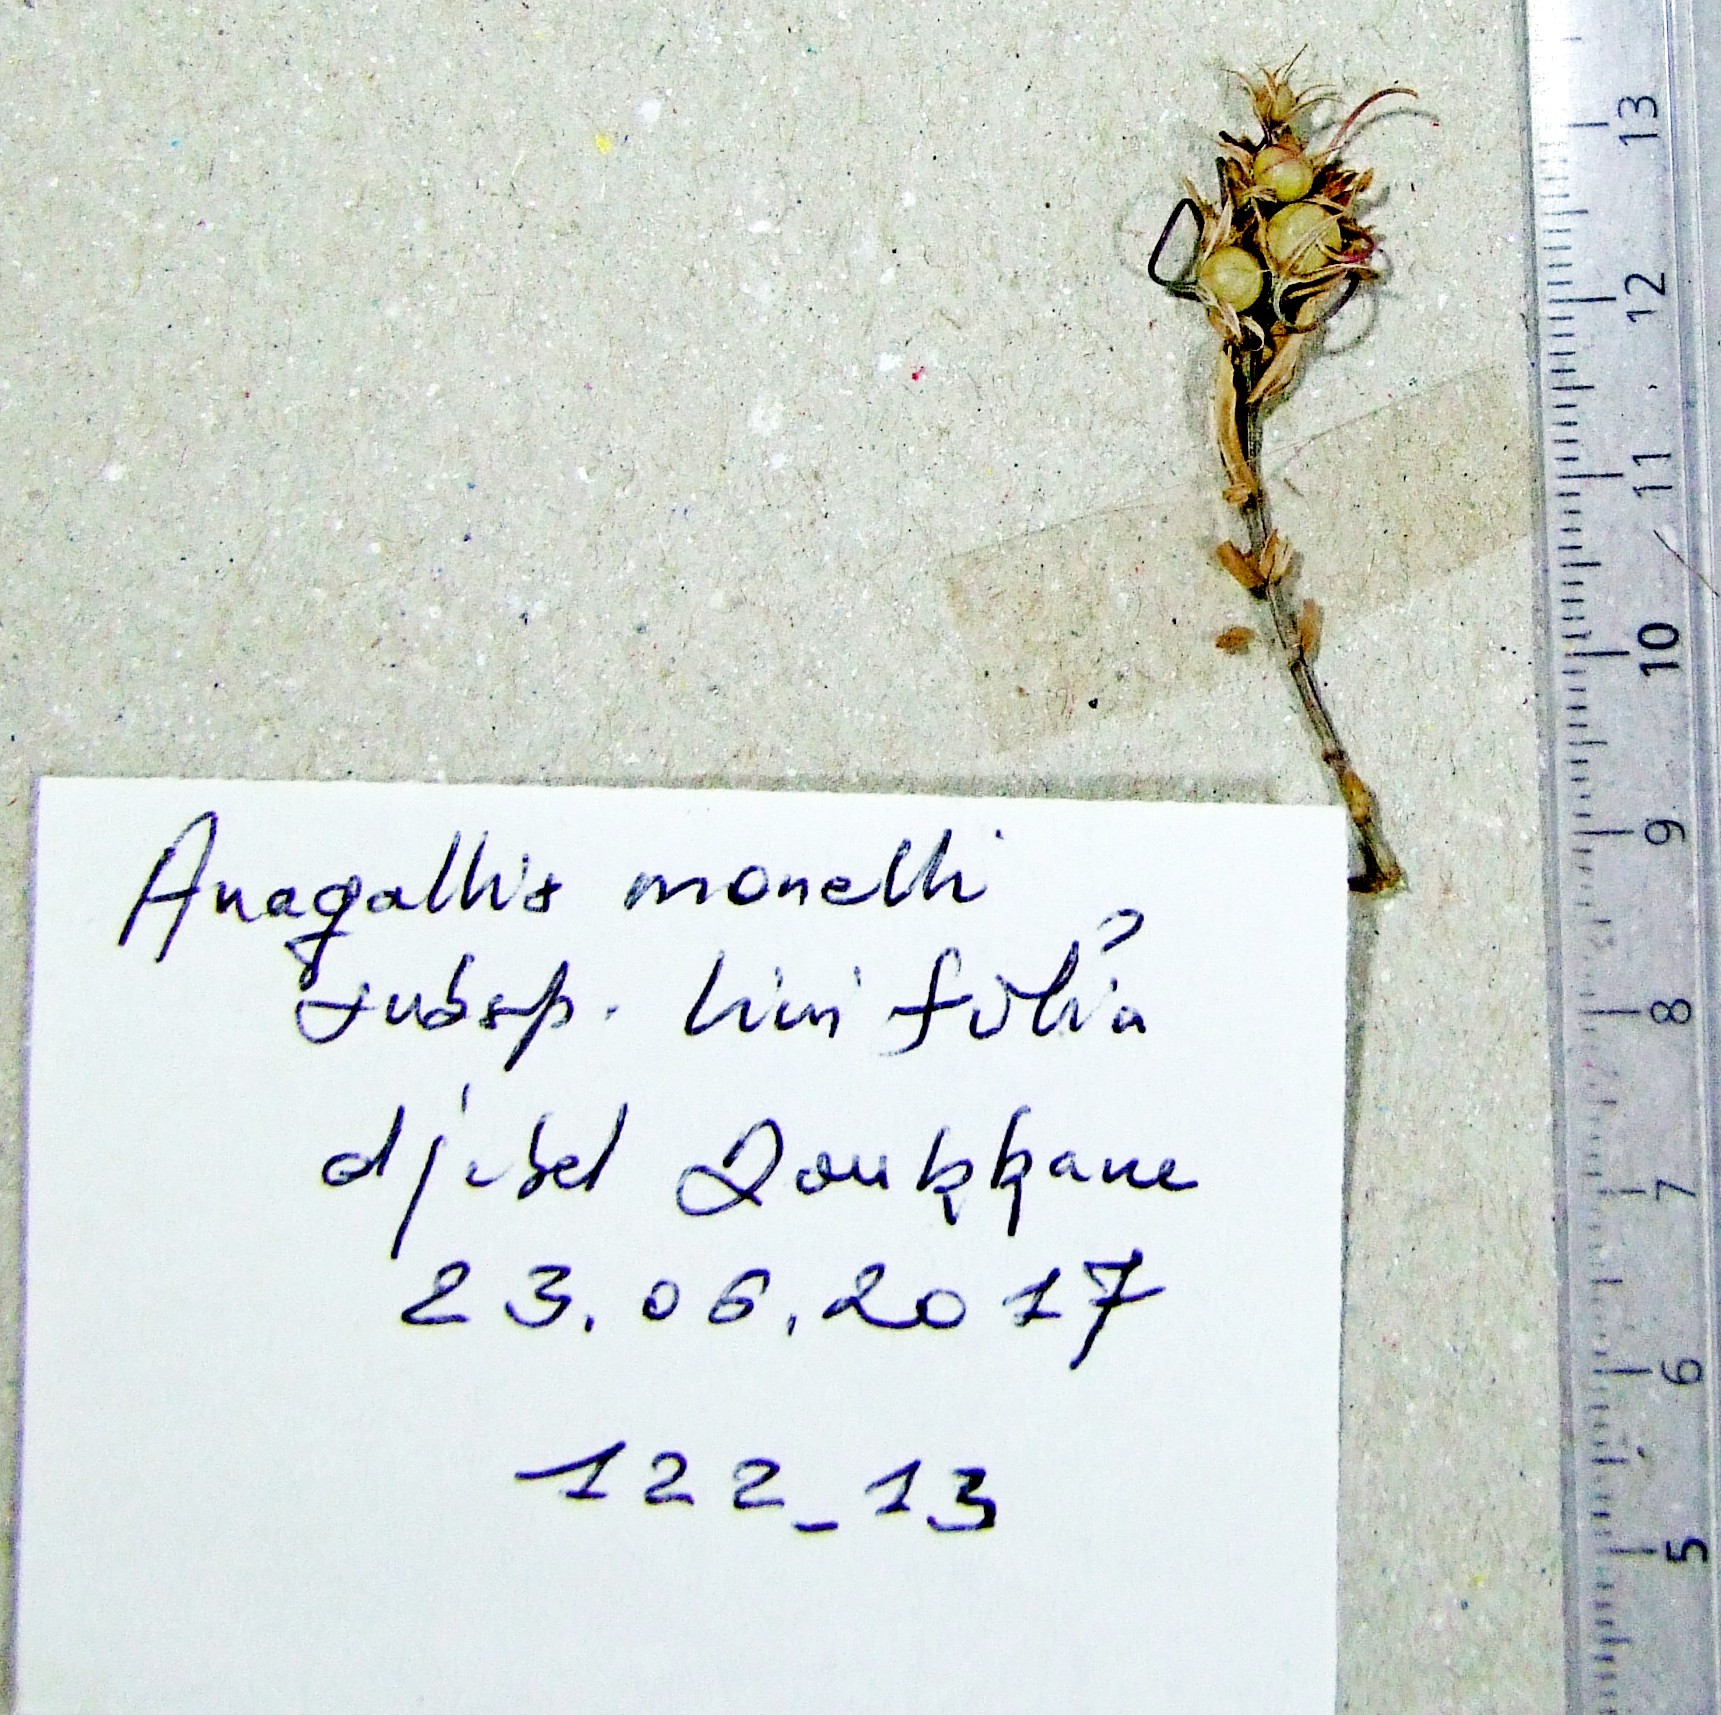 Anagallis monelli
?
subsp. linifolia
djebel Doukkane
23.06.2017
122_13
13
12
11
10
9
8
7
6
5